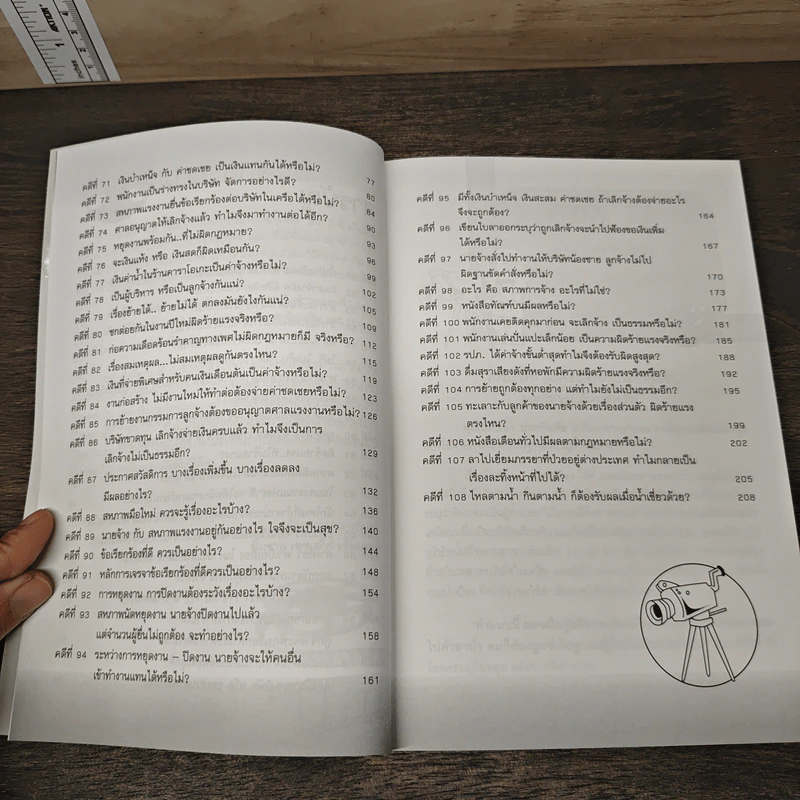 คดีที่ 71 เงินบำเหน็จ กับ ค่าชดเชย เป็นเงินแทนกันได้หรือไม่? 77
คดีที่ 72 พนักงานเป็นร่างทรงในบริษัท จัดการอย่างไรดี? 80
คดีที่ 73 สหภาพแรงงานยื่นข้อเรียกร้องต่อบริษัทในเครือได้หรือไม่? 84
คดีที่ 74 ศาลอนุญาตให้เลิกจ้างแล้ว ทำไมจึงมาทำงานต่อได้อีก? 90
คดีที่ 75 หยุดงานพร้อมกัน..ที่ไม่ผิดกฎหมาย? 93
คดีที่ 76 จะเงินแห้ง หรือ เงินสดก็ผิดเหมือนกัน? 96
คดีที่ 77 เงินค่าน้ำในร้านคาราโอเกะเป็นค่าจ้างหรือไม่? 99
คดีที่ 78 เป็นผู้บริหาร หรือเป็นลูกจ้างกันแน่? 102
คดีที่ 79 เรื่องย้ายได้.. ย้ายไม่ได้ ตกลงมันยังไงกันแน่? 105
คดีที่ 80 ชกต่อยกันในงานปีใหม่ผิดร้ายแรงจริงหรือ? 109
คดีที่ 81 ก่อความเดือดร้อนรำคาญทางเพศไม่ผิดกฎหมายก็มี จริงหรือ? 112
คดีที่ 82 เรื่องสมเหตุผล...ไม่สมเหตุผลดูกันตรงไหน? 115
คดีที่ 83 เงินที่จ่ายพิเศษสำหรับคนเงินเดือนตันเป็นค่าจ้างหรือไม่? 119
คดีที่ 84 งานก่อสร้าง ไม่มีงานใหม่ให้ทำต่อต้องจ่ายค่าชดเชยหรือไม่? 123
คดีที่ 85 การย้ายงานกรรมการลูกจ้างต้องขออนุญาตศาลแรงงานหรือไม่? 126
คดีที่ 86 บริษัทขาดทุน เลิกจ้างจ่ายเงินครบแล้ว ทำไมจึงเป็นการ
เลิกจ้างไม่เป็นธรรมอีก? 129
คดีที่ 87 ประกาศสวัสดิการ บางเรื่องเพิ่มขึ้น บางเรื่องลดลง
มีผลอย่างไร? 132
คดีที่ 88 สหภาพมือใหม่ ควรจะรู้เรื่องอะไรบ้าง? 136
คดีที่ 89 นายจ้าง กับ สหภาพแรงงานอยู่กันอย่างไร ใจจึงจะเป็นสุข? 140
คดีที่ 90 ข้อเรียกร้องที่ดี ควรเป็นอย่างไร? 144
คดีที่ 91 หลักการเจรจาข้อเรียกร้องที่ดีควรเป็นอย่างไร? 148
คดีที่ 92 การหยุดงาน การปิดงานต้องระวังเรื่องอะไรบ้าง? 154
คดีที่ 93 สหภาพนัดหยุดงาน นายจ้างปิดงานไปแล้ว
แต่จำนวนผู้ยื่นไม่ถูกต้อง จะทำอย่างไร? 158
คดีที่ 94 ระหว่างการหยุดงาน – ปิดงาน นายจ้างจะให้คนอื่น
เข้าทำงานแทนได้หรือไม่? 161
คดีที่ 95 มีทั้งเงินบำเหน็จ เงินสะสม ค่าชดเชย ถ้าเลิกจ้างต้องจ่ายอะไร
จึงจะถูกต้อง? 164
คดีที่ 96 เขียนใบลาออกระบุว่าถูกเลิกจ้างจะนำไปฟ้องขอเงินเพิ่ม
ได้หรือไม่? 167
คดีที่ 97 นายจ้างสั่งไปทำงานให้บริษัทน้องชาย ลูกจ้างไม่ไป
ผิดฐานขัดคำสั่งหรือไม่? 170
คดีที่ 98 อะไร คือ สภาพการจ้าง อะไรที่ไม่ใช่? 173
คดีที่ 99 หนังสือทัณฑ์บนมีผลหรือไม่? 177
คดีที่ 100 พนักงานเคยติดคุกมาก่อน จะเลิกจ้าง เป็นธรรมหรือไม่? 181
คดีที่ 101 พนักงานเล่นปั่นแปะเล็กน้อย เป็นความผิดร้ายแรงจริงหรือ? 185
คดีที่ 102 รปภ. ได้ค่าจ้างขั้นต่ำสุดทำไมจึงต้องรับผิดสูงสุด? 188
คดีที่ 103 ดื่มสุราเสียงดังที่หอพักมีความผิดร้ายแรงจริงหรือ? 192
คดีที่ 104 การย้ายถูกต้องทุกอย่าง แต่ทำไมยังไม่เป็นธรรมอีก? 195
คดีที่ 105 ทะเลาะกับลูกค้าของนายจ้างด้วยเรื่องส่วนตัว ผิดร้ายแรง
ตรงไหน? 199
คดีที่ 106 หนังสือเตือนทั่วไปมีผลตามกฎหมายหรือไม่? 202
คดีที่ 107 ลาไปเยี่ยมภรรยาที่ป่วยอยู่ต่างประเทศ ทำไมกลายเป็น
เรื่องละทิ้งหน้าที่ไปได้? 205
คดีที่ 108 ไหลตามน้ำ กินตามน้ำ ก็ต้องรับผลเมื่อน้ำเชี่ยวด้วย? 208